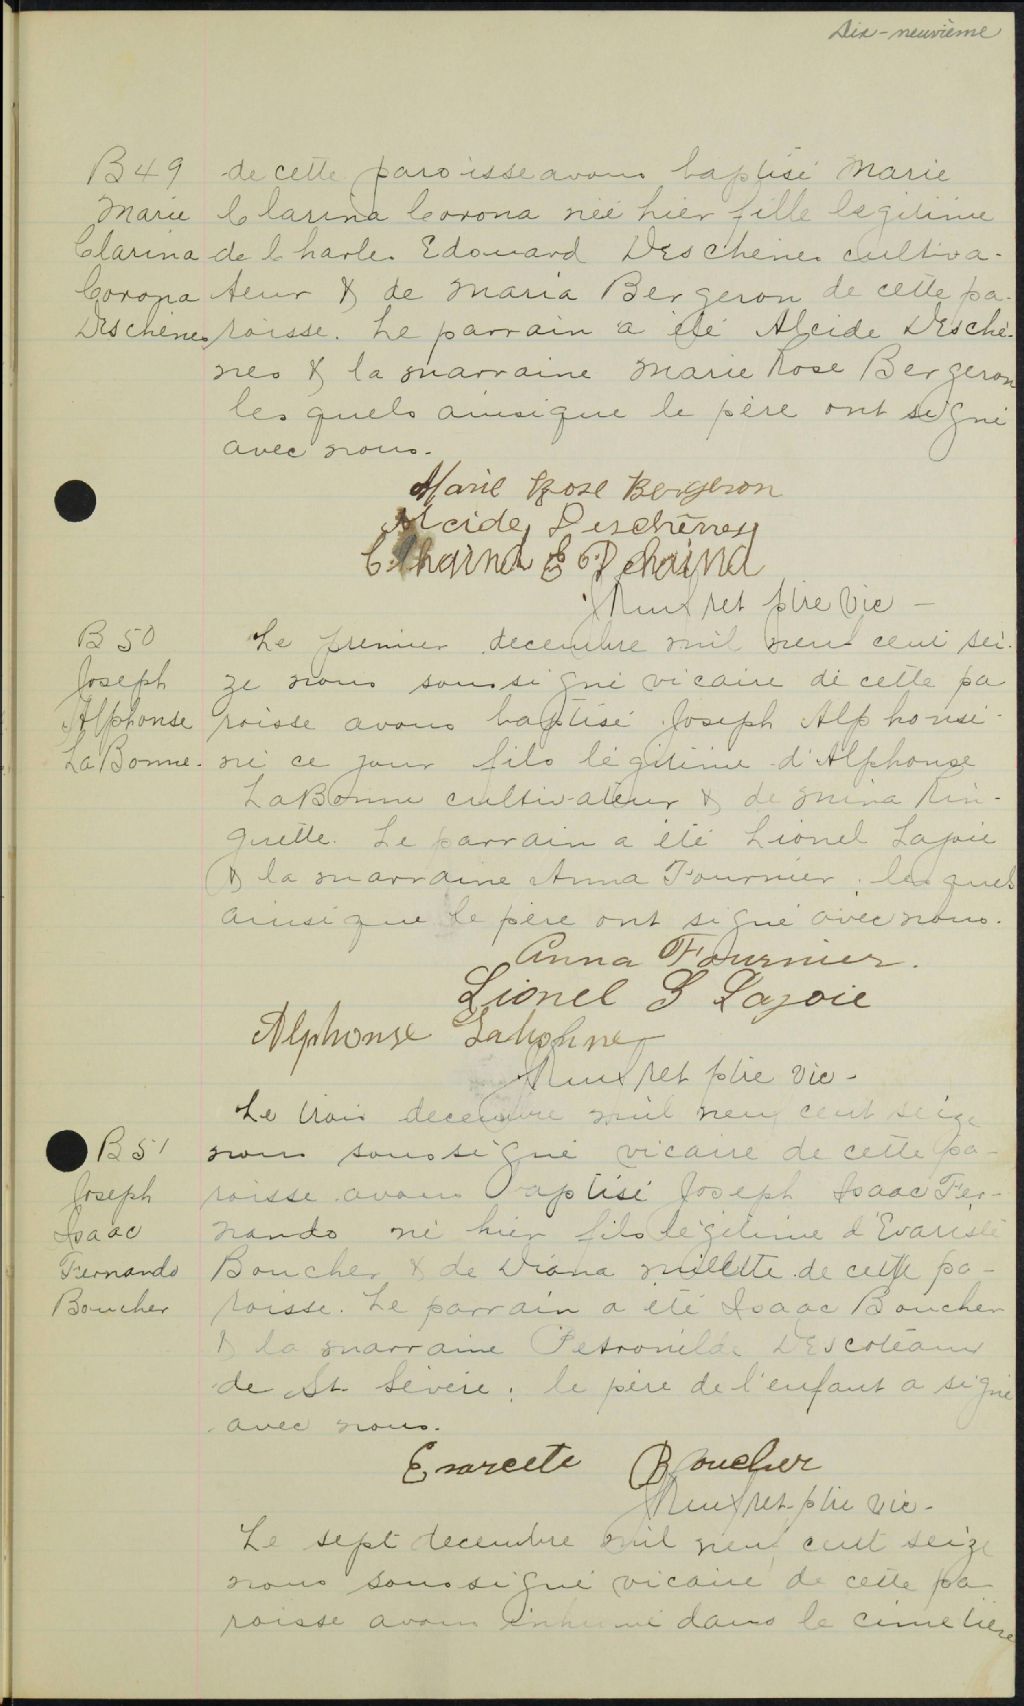 Dix-neuvième
B 49
Marie
Clarina
Corona
Deschênes
de cette paroisse avons baptisé Marie
Clarina Corona née hier fille légitime
de Charles Edouard Deschênes cultiva-
teur & de Maria Bergeron de cette pa-
roisse. Le parrain a été Alcide Deschê-
nes & la marraine Marie Rose Bergeron
lesquels ainsi que le père ont signé
avec nous.
Marie Rose Bergeron
Alcide Deschênes
ptre vic -
B 50
Joseph
Alphonse
LaBonne.
Le premier decembre mil neuf cent sei-
ze nous soussigné vicaire de cette pa
roisse avons baptisé Joseph Alphonse
né ce jour fils légitime d'Alphonse
LaBonne cultivateur & de Mina Rin-
guette. Le parrain a été Lionel Lajoie
& la marraine Anna Fournier; lesquels
ainsi que le père ont signé avec nous.
Anna Fournier.
Lionel G Lajoie
Alphonse Labonne
ptre vic -
B 51
Joseph
Isaac
Fernando
Boucher
Le trois decembre mil neuf cent seize
nous soussigné vicaire de cette pa-
roisse avons baptisé Joseph Isaac Fer-
nando né hier fils légitime d'Evariste
Boucher & de Diana Millette de cette pa-
roisse. Le parrain a été Isaac Boucher
& la marraine Petronilde Descoteaux
de St. Sévère; le père de l'enfant a signé
avec nous.
Evarcete Boucher
ptre vic -
Le sept decembre mil neuf cent seize
nous soussigné vicaire de cette pa
roisse avons inhumé dans le cimetière